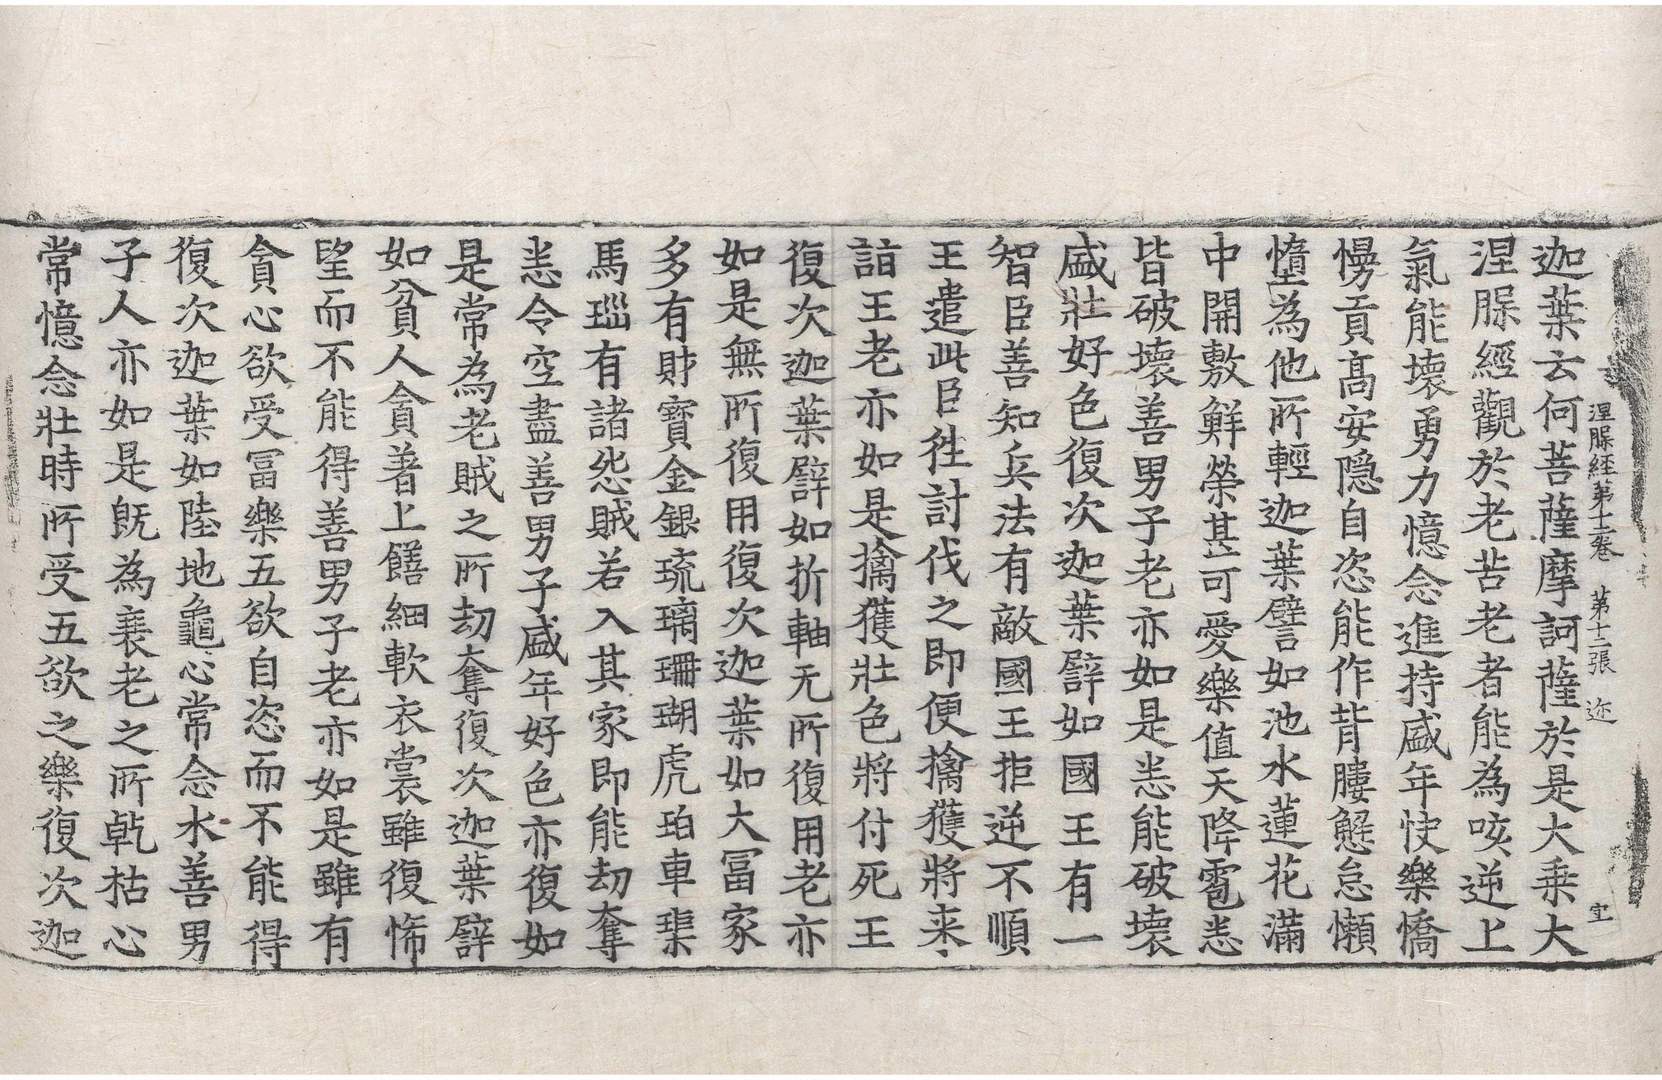 涅槃経第十二卷　第十二張　迩
迦葉云何菩薩摩訶薩於是大乗大
涅槃經觀於老苦老者能為咳逆上
氣能壞勇力憶念進持盛年快樂憍
慢貢髙安隱自恣能作背膢懈怠懶
惰為他所輕迦葉譬如池水蓮花滿
中開敷鮮榮甚可愛樂值天降雹悉
皆破壞善男子老亦如是悉能破壞
盛壯好色復次迦葉譬如國王有一
智臣善知兵法有敵國王拒逆不順
王遣此臣往討伐之即便擒獲將来
詣王老亦如是擒獲壯色將付死王
復次迦葉譬如折軸无所復用老亦
如是無所復用復次迦葉如大冨家
多有財寳金銀琉璃珊瑚虎珀車𤦲
馬瑙有諸怨賊若入其家即能刧奪
悉令空盡善男子盛年好色亦復如
是常為老賊之所刧奪復次迦葉譬
如貧人貪著上饍細軟衣裳雖復悕
望而不能得善男子老亦如是雖有
貪心欲受冨樂五欲自恣而不能得
復次迦葉如陸地龜心常念水善男
子人亦如是既為衰老之所乹枯心
常憶念壯時所受五欲之樂復次迦